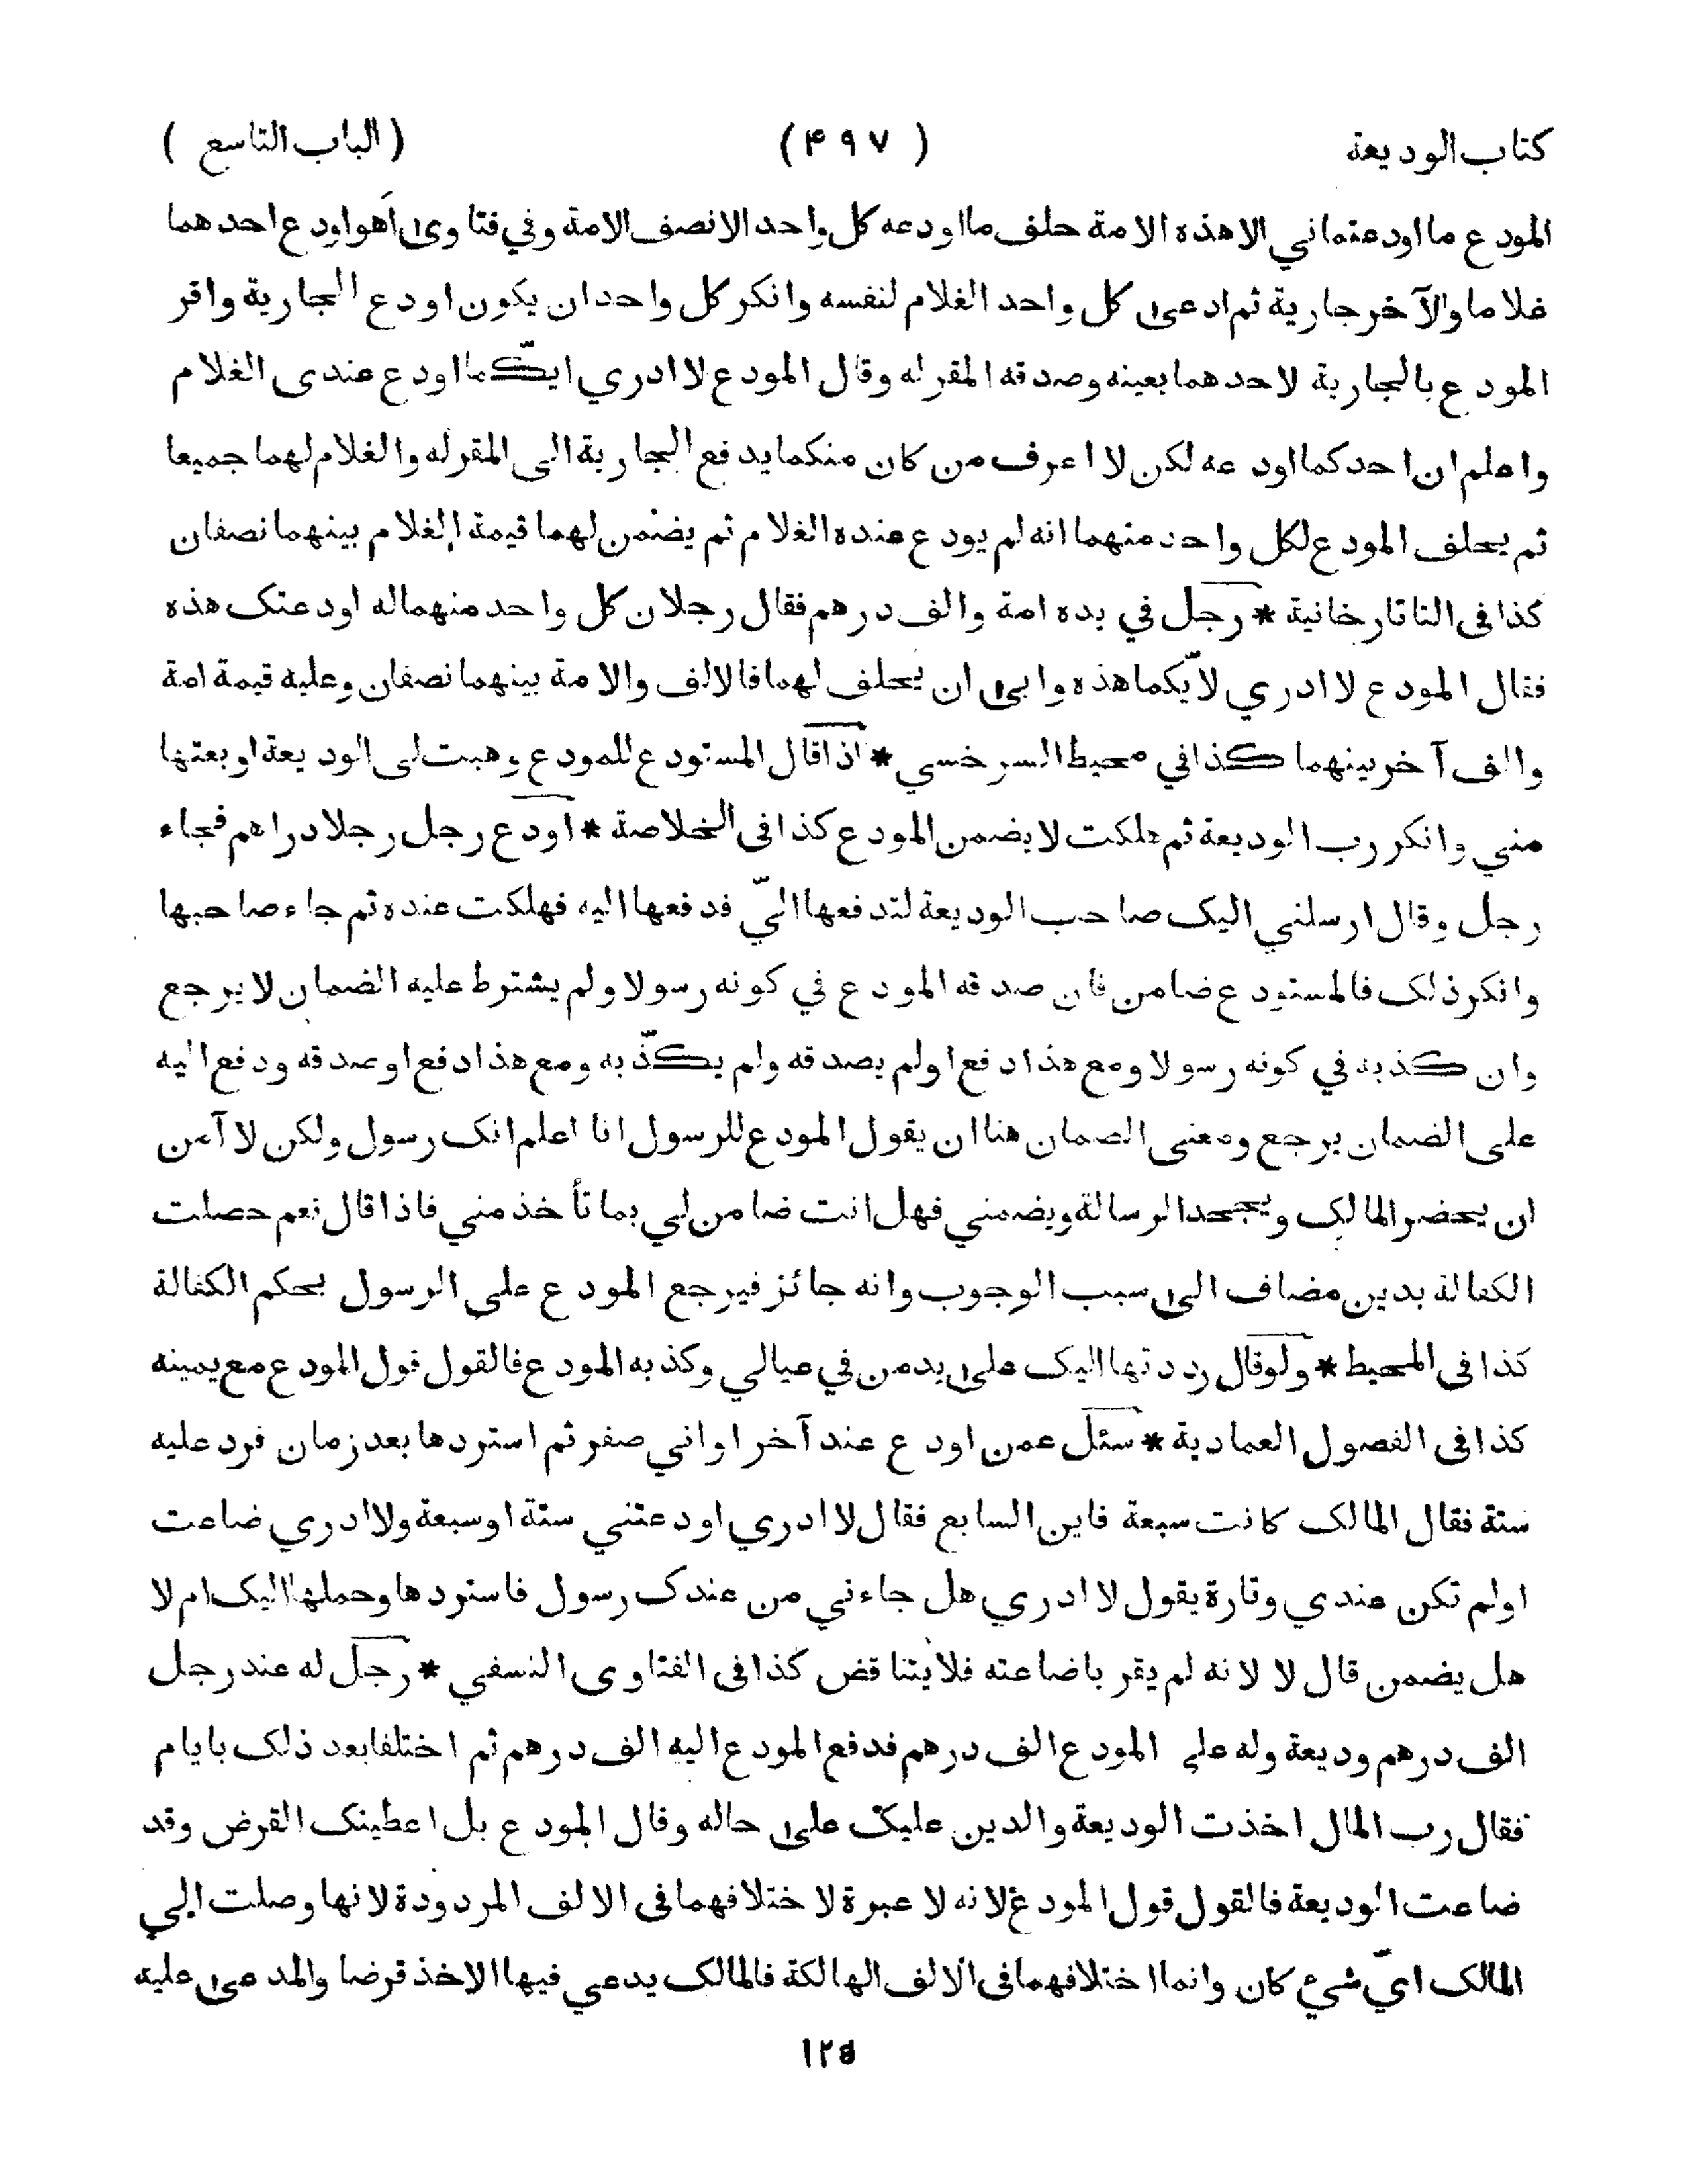 كتاب الوديعة ( ۴۹۷ ) ( الباب التاسع )
المودع ما اودعتماني الا هذه الامة حلف ما اودعه كل واحد الا نصف الامة وفي فتاوى آهو اودع احدهما
غلاما والآخر جارية ثم ادعى كل واحد الغلام لنفسه وانكر كل واحد ان يكون اودع الجارية واقر
المودع بالجارية لاحدهما بعينه وصدقه المقر له وقال المودع لا ادري ايّكما اودع عندى الغلام
واعلم ان احدكما اودعه لكن لا اعرف من كان منكما يدفع الجارية الى المقر له والغلام لهما جميعا
ثم يحلف المودع لكل واحد منهما انه لم يودع عنده الغلام ثم يضمن لهما قيمة الغلام بينهما نصفان
كذا فى التاتارخانية * رجل في يده امة والف درهم فقال رجلان كل واحد منهما له اودعتك هذه
فقال المودع لا ادري لايّكما هذه وابى ان يحلف لهما فالالف والامة بينهما نصفان وعليه قيمة امة
والف آخر بينهما كذا في محيط السرخسي * اذا قال المستودع للمودع وهبت لى الوديعة او بعتها
مني وانكر رب الوديعة ثم هلكت لا يضمن المودع كذا فى الخلاصة * اودع رجل رجلا دراهم فجاء
رجل وقال ارسلني اليك صاحب الوديعة لتدفعها اليّ فدفعها اليه فهلكت عنده ثم جاء صاحبها
وانكر ذلك فالمستودع ضامن فان صدقه المودع في كونه رسولا ولم يشترط عليه الضمان لا يرجع
وان كذبه في كونه رسولا ومع هذا دفع او لم يصدقه ولم يكذّبه ومع هذا دفع او صدقه ودفع اليه
على الضمان يرجع ومعنى الضمان هنا ان يقول المودع للرسول انا اعلم انك رسول ولكن لا آمن
ان يحضر المالك ويجحد الرسالة ويضمني فهل انت ضامن لي بما تأخذ مني فاذا قال نعم حصلت
الكفالة بدين مضاف الى سبب الوجوب وانه جائز فيرجع المودع على الرسول بحكم الكفالة
كذا فى المحيط * ولو قال رددتها اليك على يد من في عيالي وكذبه المودع فالقول قول المودع مع يمينه
كذا فى الفصول العمادية * سئل عمن اودع عند آخر اواني صفر ثم استردها بعد زمان فرد عليه
ستة فقال المالك كانت سبعة فاين السابع فقال لا ادري اودعتني ستة او سبعة ولا ادري ضاعت
او لم تكن عندي وتارة يقول لا ادري هل جاءني من عندك رسول فاستردها وحملها اليك ام لا
هل يضمن قال لا لانه لم يقر باضاعته فلا يتناقض كذا فى الفتاوى النسفي * رجل له عند رجل
الف درهم وديعة وله على المودع الف درهم فدفع المودع اليه الف درهم ثم اختلفا بعد ذلك بايام
فقال رب المال اخذت الوديعة والدين عليك على حاله وقال المودع بل اعطيتك القرض وقد
ضاعت الوديعة فالقول قول المودع لانه لا عبرة لاختلافهما فى الالف المردودة لانها وصلت الى
المالك ايّ شيء كان وانما اختلافهما فى الالف الهالكة فالمالك يدعي فيها الاخذ قرضا والمدعى عليه